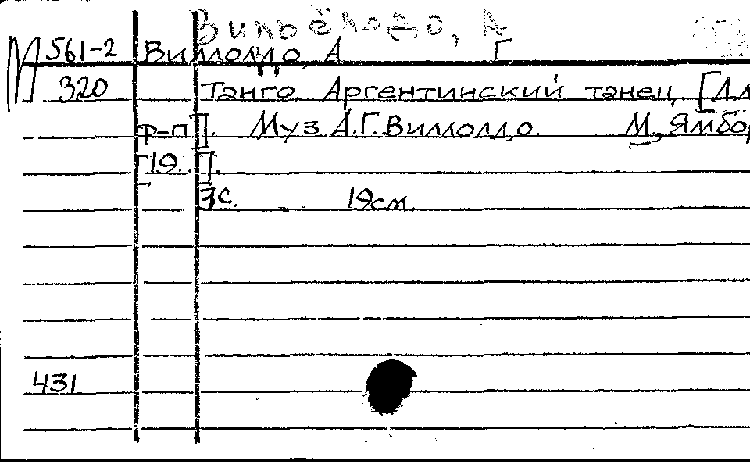 Вильёльдо, А
М 561-2 Виллолдо, А Г
320 Танго Аргентинский танец [Дл
ф-п]. Муз. А.Г. Виллолдо. М, Ямбор
[19..].
3с. 19см.
431